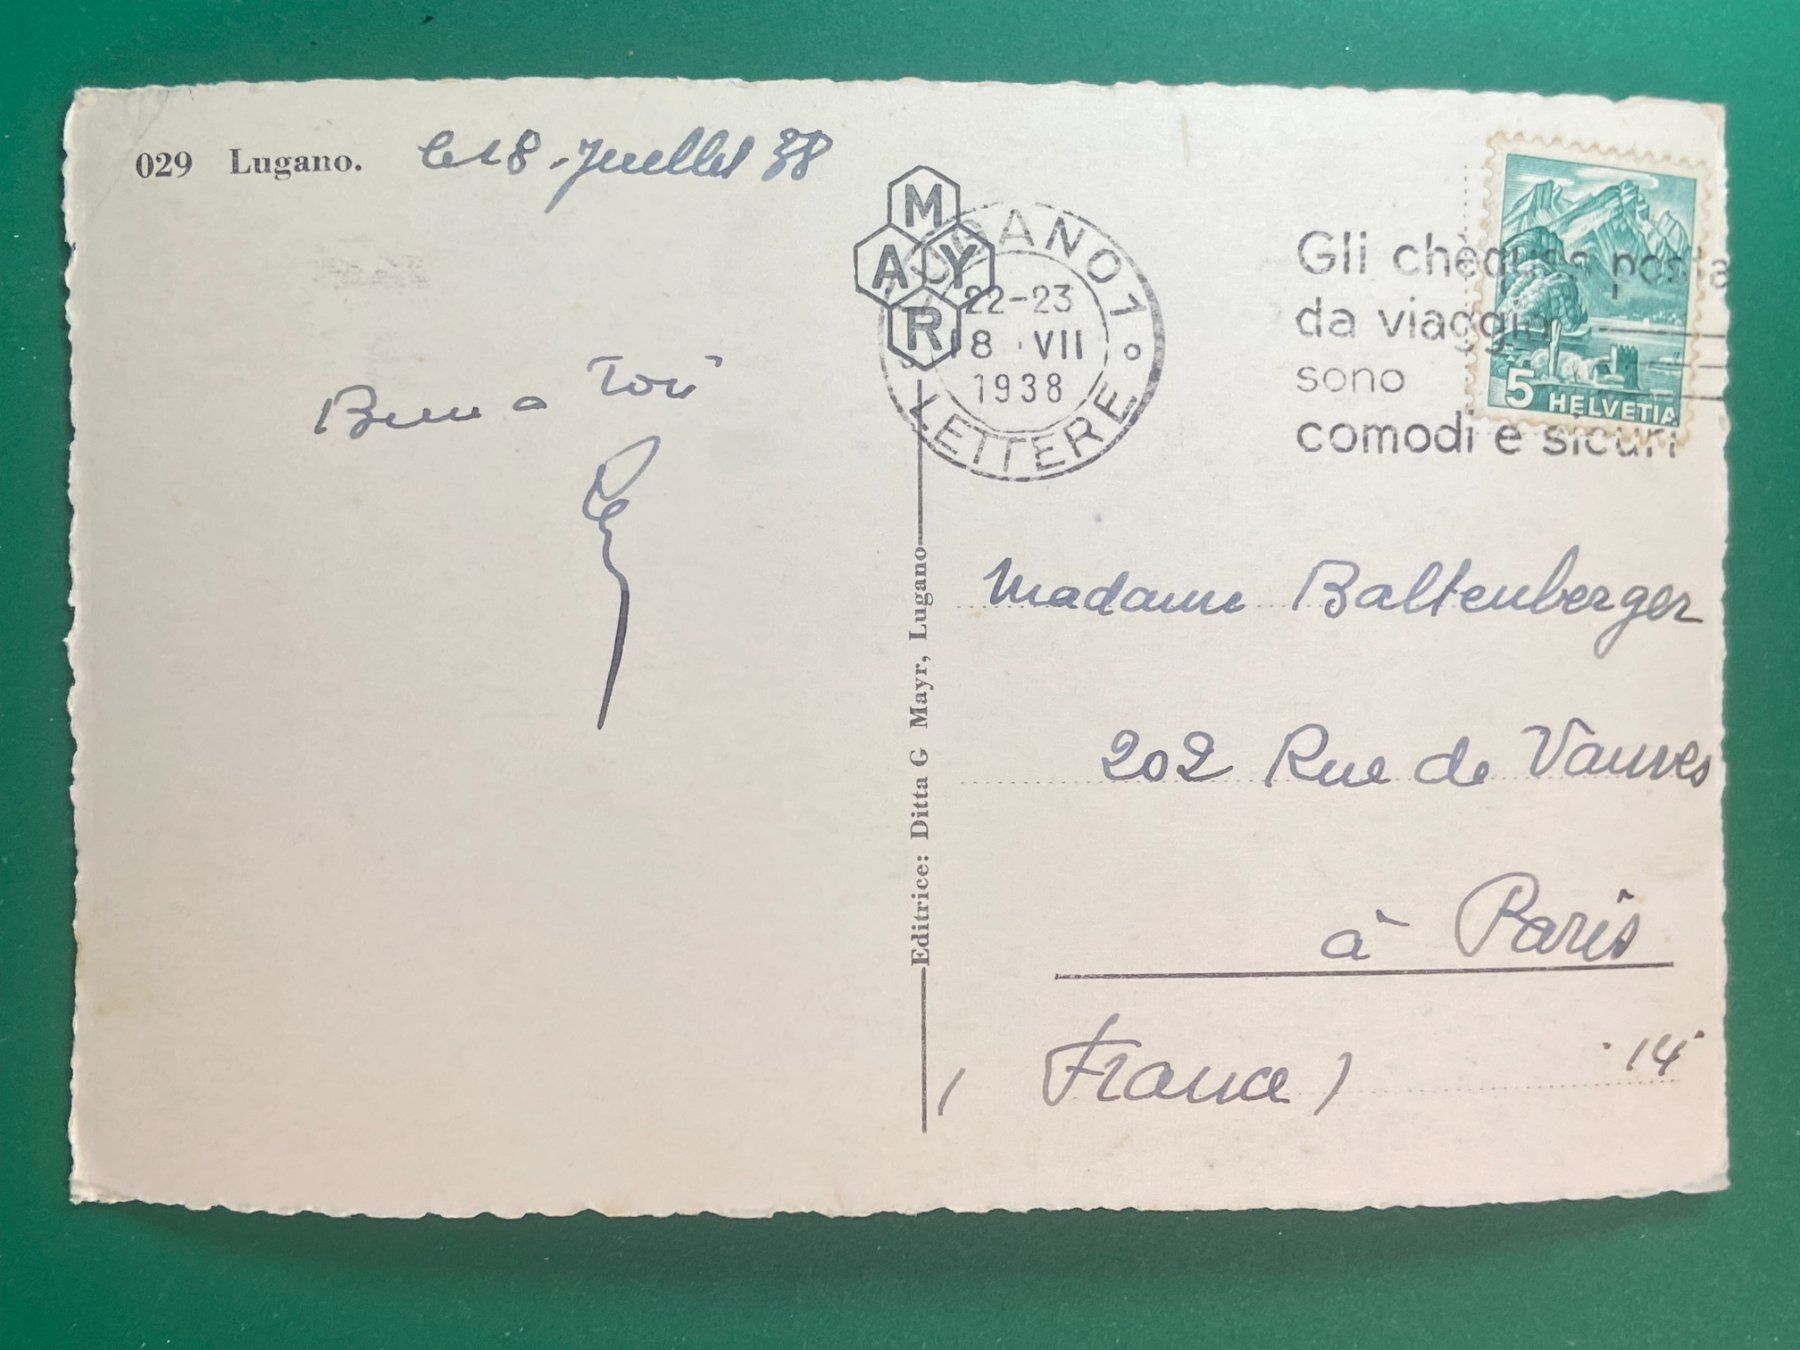 029 Lugano. le 18 Juillet 38
MAYR
LUGANO 1
22-23
18 · VII
1938
LETTERE
Gli chèques posta
da viaggio
sono
comodi e sicuri
5 HELVETIA
à Toi
Editrice: Ditta G Mayr, Lugano
Madame Baltenberger
202 Rue de Vanves
à Paris
(France)
14